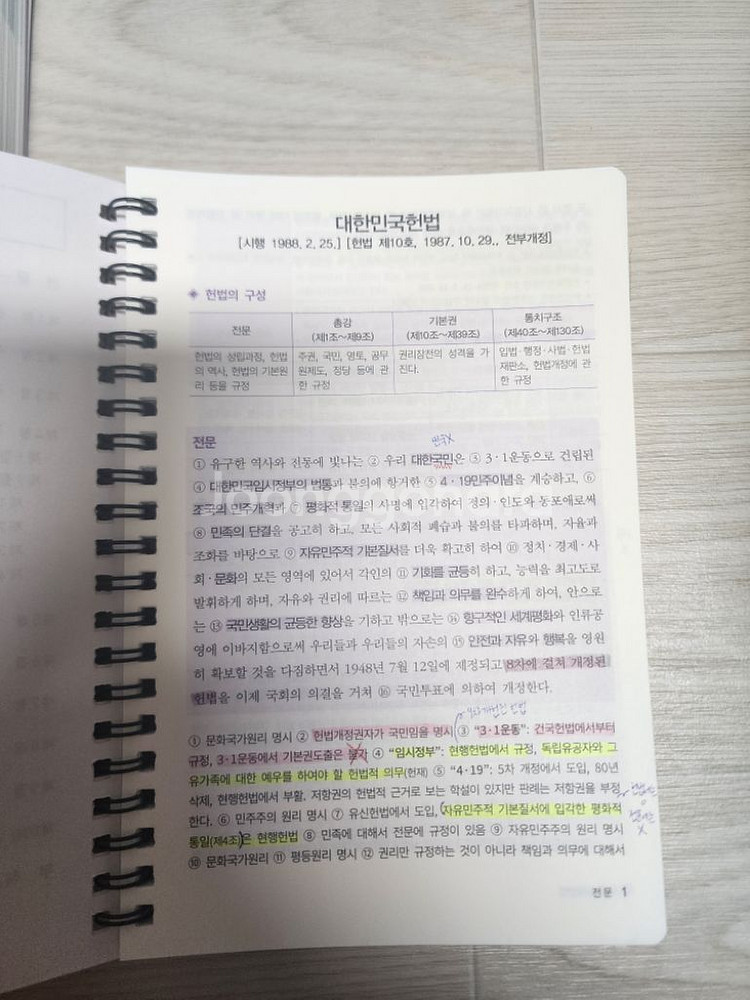 대한민국헌법
[시행 1988. 2. 25.] [헌법 제10호, 1987. 10. 29., 전부개정]
◈ 헌법의 구성
전문
총강
(제1조~제9조)
기본권
(제10조~제39조)
통치구조
(제40조~제130조)
헌법의 성립과정, 헌법
의 역사, 헌법의 기본원
리 등을 규정
주권, 국민, 영토, 공무
원제도, 정당 등에 관
한 규정
권리장전의 성격을 가
진다.
입법·행정·사법·헌법
재판소, 헌법개정에 관
한 규정
전문
① 유구한 역사와 전통에 빛나는 ② 우리 대한국민은 ③ 3·1운동으로 건립된
④ 대한민국임시정부의 법통과 불의에 항거한 ⑤ 4·19민주이념을 계승하고, ⑥
조국의 민주개혁과 ⑦ 평화적 통일의 사명에 입각하여 정의·인도와 동포애로써
⑧ 민족의 단결을 공고히 하고, 모든 사회적 폐습과 불의를 타파하며, 자율과
조화를 바탕으로 ⑨ 자유민주적 기본질서를 더욱 확고히 하여 ⑩ 정치·경제·사
회·문화의 모든 영역에 있어서 각인의 ⑪ 기회를 균등히 하고, 능력을 최고도로
발휘하게 하며, 자유와 권리에 따르는 ⑫ 책임과 의무를 완수하게 하여, 안으로
는 ⑬ 국민생활의 균등한 향상을 기하고 밖으로는 ⑭ 항구적인 세계평화와 인류공
영에 이바지함으로써 우리들과 우리들의 자손의 ⑮ 안전과 자유와 행복을 영원
히 확보할 것을 다짐하면서 1948년 7월 12일에 제정되고 8차에 걸쳐 개정된
헌법을 이제 국회의 의결을 거쳐 ⑯ 국민투표에 의하여 개정한다.
① 문화국가원리 명시 ② 헌법개정권자가 국민임을 명시 ③ “3·1운동”: 건국헌법에서부터
규정, 3·1운동에서 기본권도출은 불가 ④ “임시정부”: 현행헌법에서 규정, 독립유공자와 그
유가족에 대한 예우를 하여야 할 헌법적 의무(헌재) ⑤ “4·19”: 5차 개정에서 도입, 80년
삭제, 현행헌법에서 부활. 저항권의 헌법적 근거로 보는 학설이 있지만 판례는 저항권을 부정
한다. ⑥ 민주주의 원리 명시 ⑦ 유신헌법에서 도입, 자유민주적 기본질서에 입각한 평화적
통일(제4조)은 현행헌법 ⑧ 민족에 대해서 전문에 규정이 있음 ⑨ 자유민주주의 원리 명시
⑩ 문화국가원리 ⑪ 평등원리 명시 ⑫ 권리만 규정하는 것이 아니라 책임과 의무에 대해서
전문 1